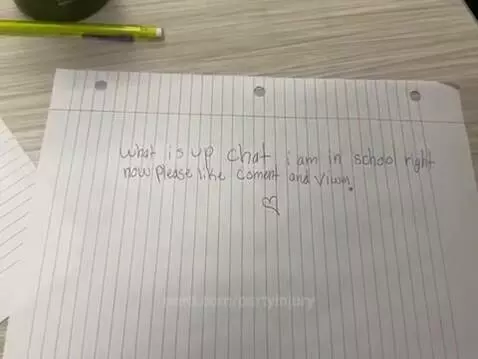 What is up chat i am in school right
now please like Coment and View!